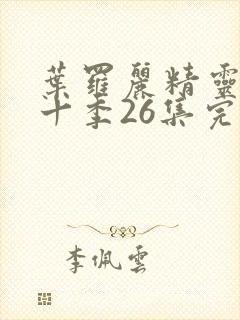 葉羅麗精靈
十季26集完
李佩雲